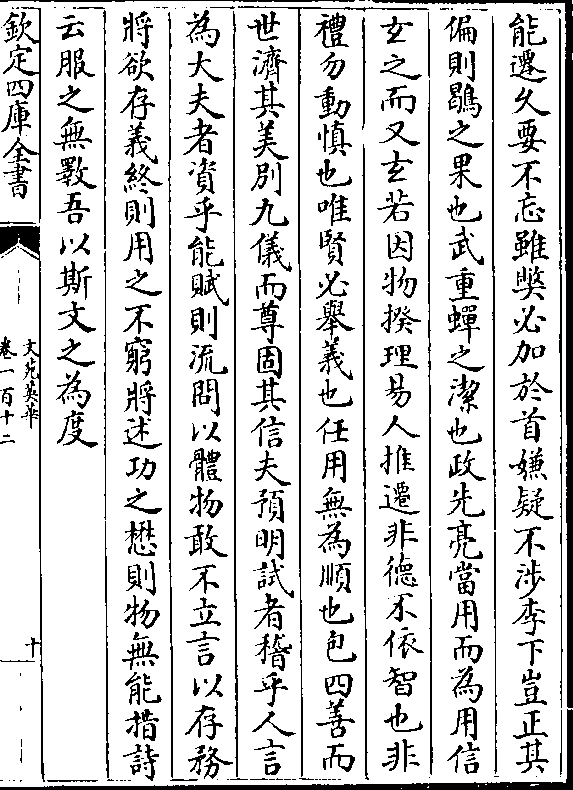 能遷久要不忘雖獘必加於首嫌疑不涉李下豈正其
偏則鶡之果也武重蟬之潔也政先亮當用而為用信
玄之而又玄若因物揆理易人推遷非德不依智也非
禮勿動慎也唯賢必舉義也任用無為順也包四善而
世濟其美別九儀而尊固其信夫預明試者稽乎人言
為大夫者資乎能賦則流問以體物敢不立言以存務
將欲存義終則用之不窮將述功之懋則物無能措詩
云服之無斁吾以斯文之為度
欽定四庫全書
文苑英華
卷一百十二
十